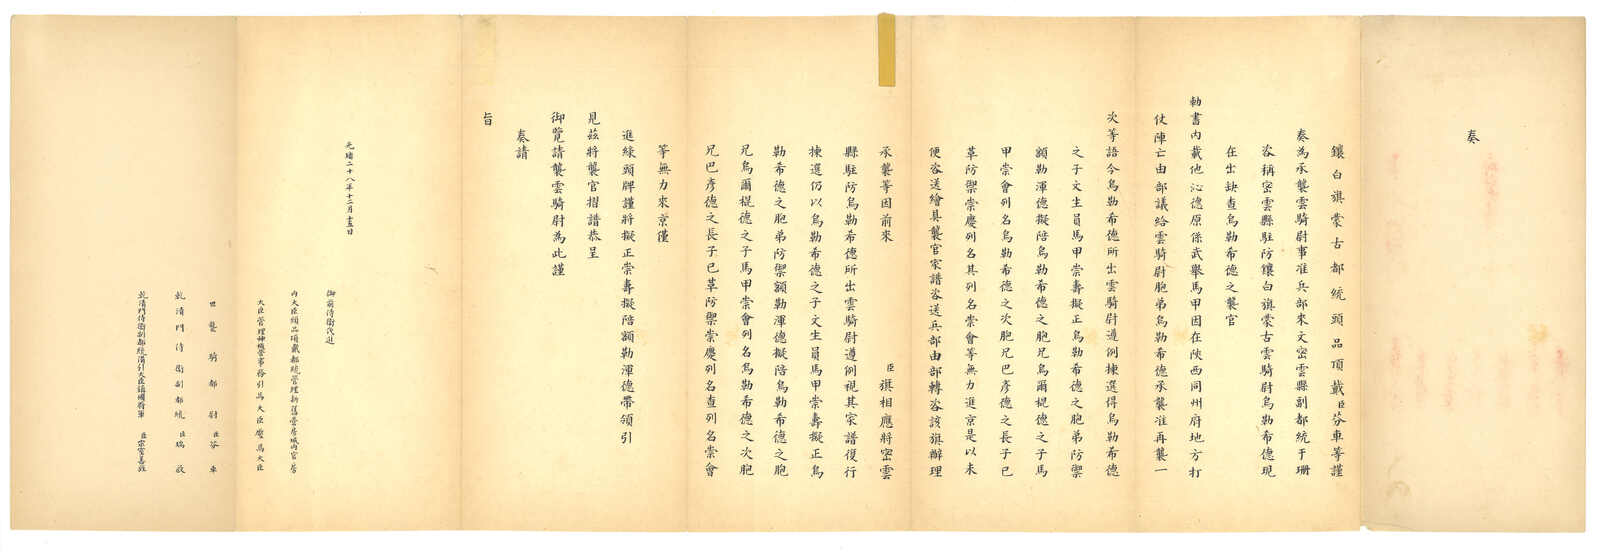 奏
鑲白旗蒙古都統頭品頂戴臣芬車等謹
奏為承襲雲騎尉事准兵部來文密雲縣副都統于珊
咨稱密雲縣駐防鑲白旗蒙古雲騎尉烏勒希德現
在出缺查烏勒希德之襲官
勅書內載他沁德原係武舉馬甲因在陝西同州府地方打
仗陣亡由部議給雲騎尉胞弟烏勒希德承襲准再襲一
次等語今烏勒希德所出雲騎尉遵例揀選得烏勒希德
之子文生員馬甲崇壽擬正烏勒希德之胞弟防禦
額勒渾德擬陪烏勒希德之胞兄烏爾棍德之子馬
甲崇會列名烏勒希德之次胞兄巴彥德之長子已
革防禦崇慶列名其列名崇會等無力進京是以未
便咨送繪具襲官家譜咨送兵部由部轉咨該旗辦理
承襲等因前來　臣旗相應將密雲
縣駐防烏勒希德所出雲騎尉遵例視其家譜復行
揀選仍以烏勒希德之子文生員馬甲崇壽擬正烏
勒希德之胞弟防禦額勒渾德擬陪烏勒希德之胞
兄烏爾棍德之子馬甲崇會列名烏勒希德之次胞
兄巴彥德之長子已革防禦崇慶列名查列名崇會
等無力來京僅
進綠頭牌謹將擬正崇壽擬陪額勒渾德帶領引
見茲將襲官摺譜恭呈
御覽請襲雲騎尉為此謹
奏請
旨
光緒二十八年十二月十五日
御前侍衛代進
內大臣頭品頂戴都統管理新舊營房城內官房
大臣管理神機營事務引馬大臣麼馬大臣
世襲騎都尉　臣芬車
乾清門侍衛副都統　臣瑞啟
乾清門侍衛副都統溝引大臣鎮國將軍　臣宗室壽